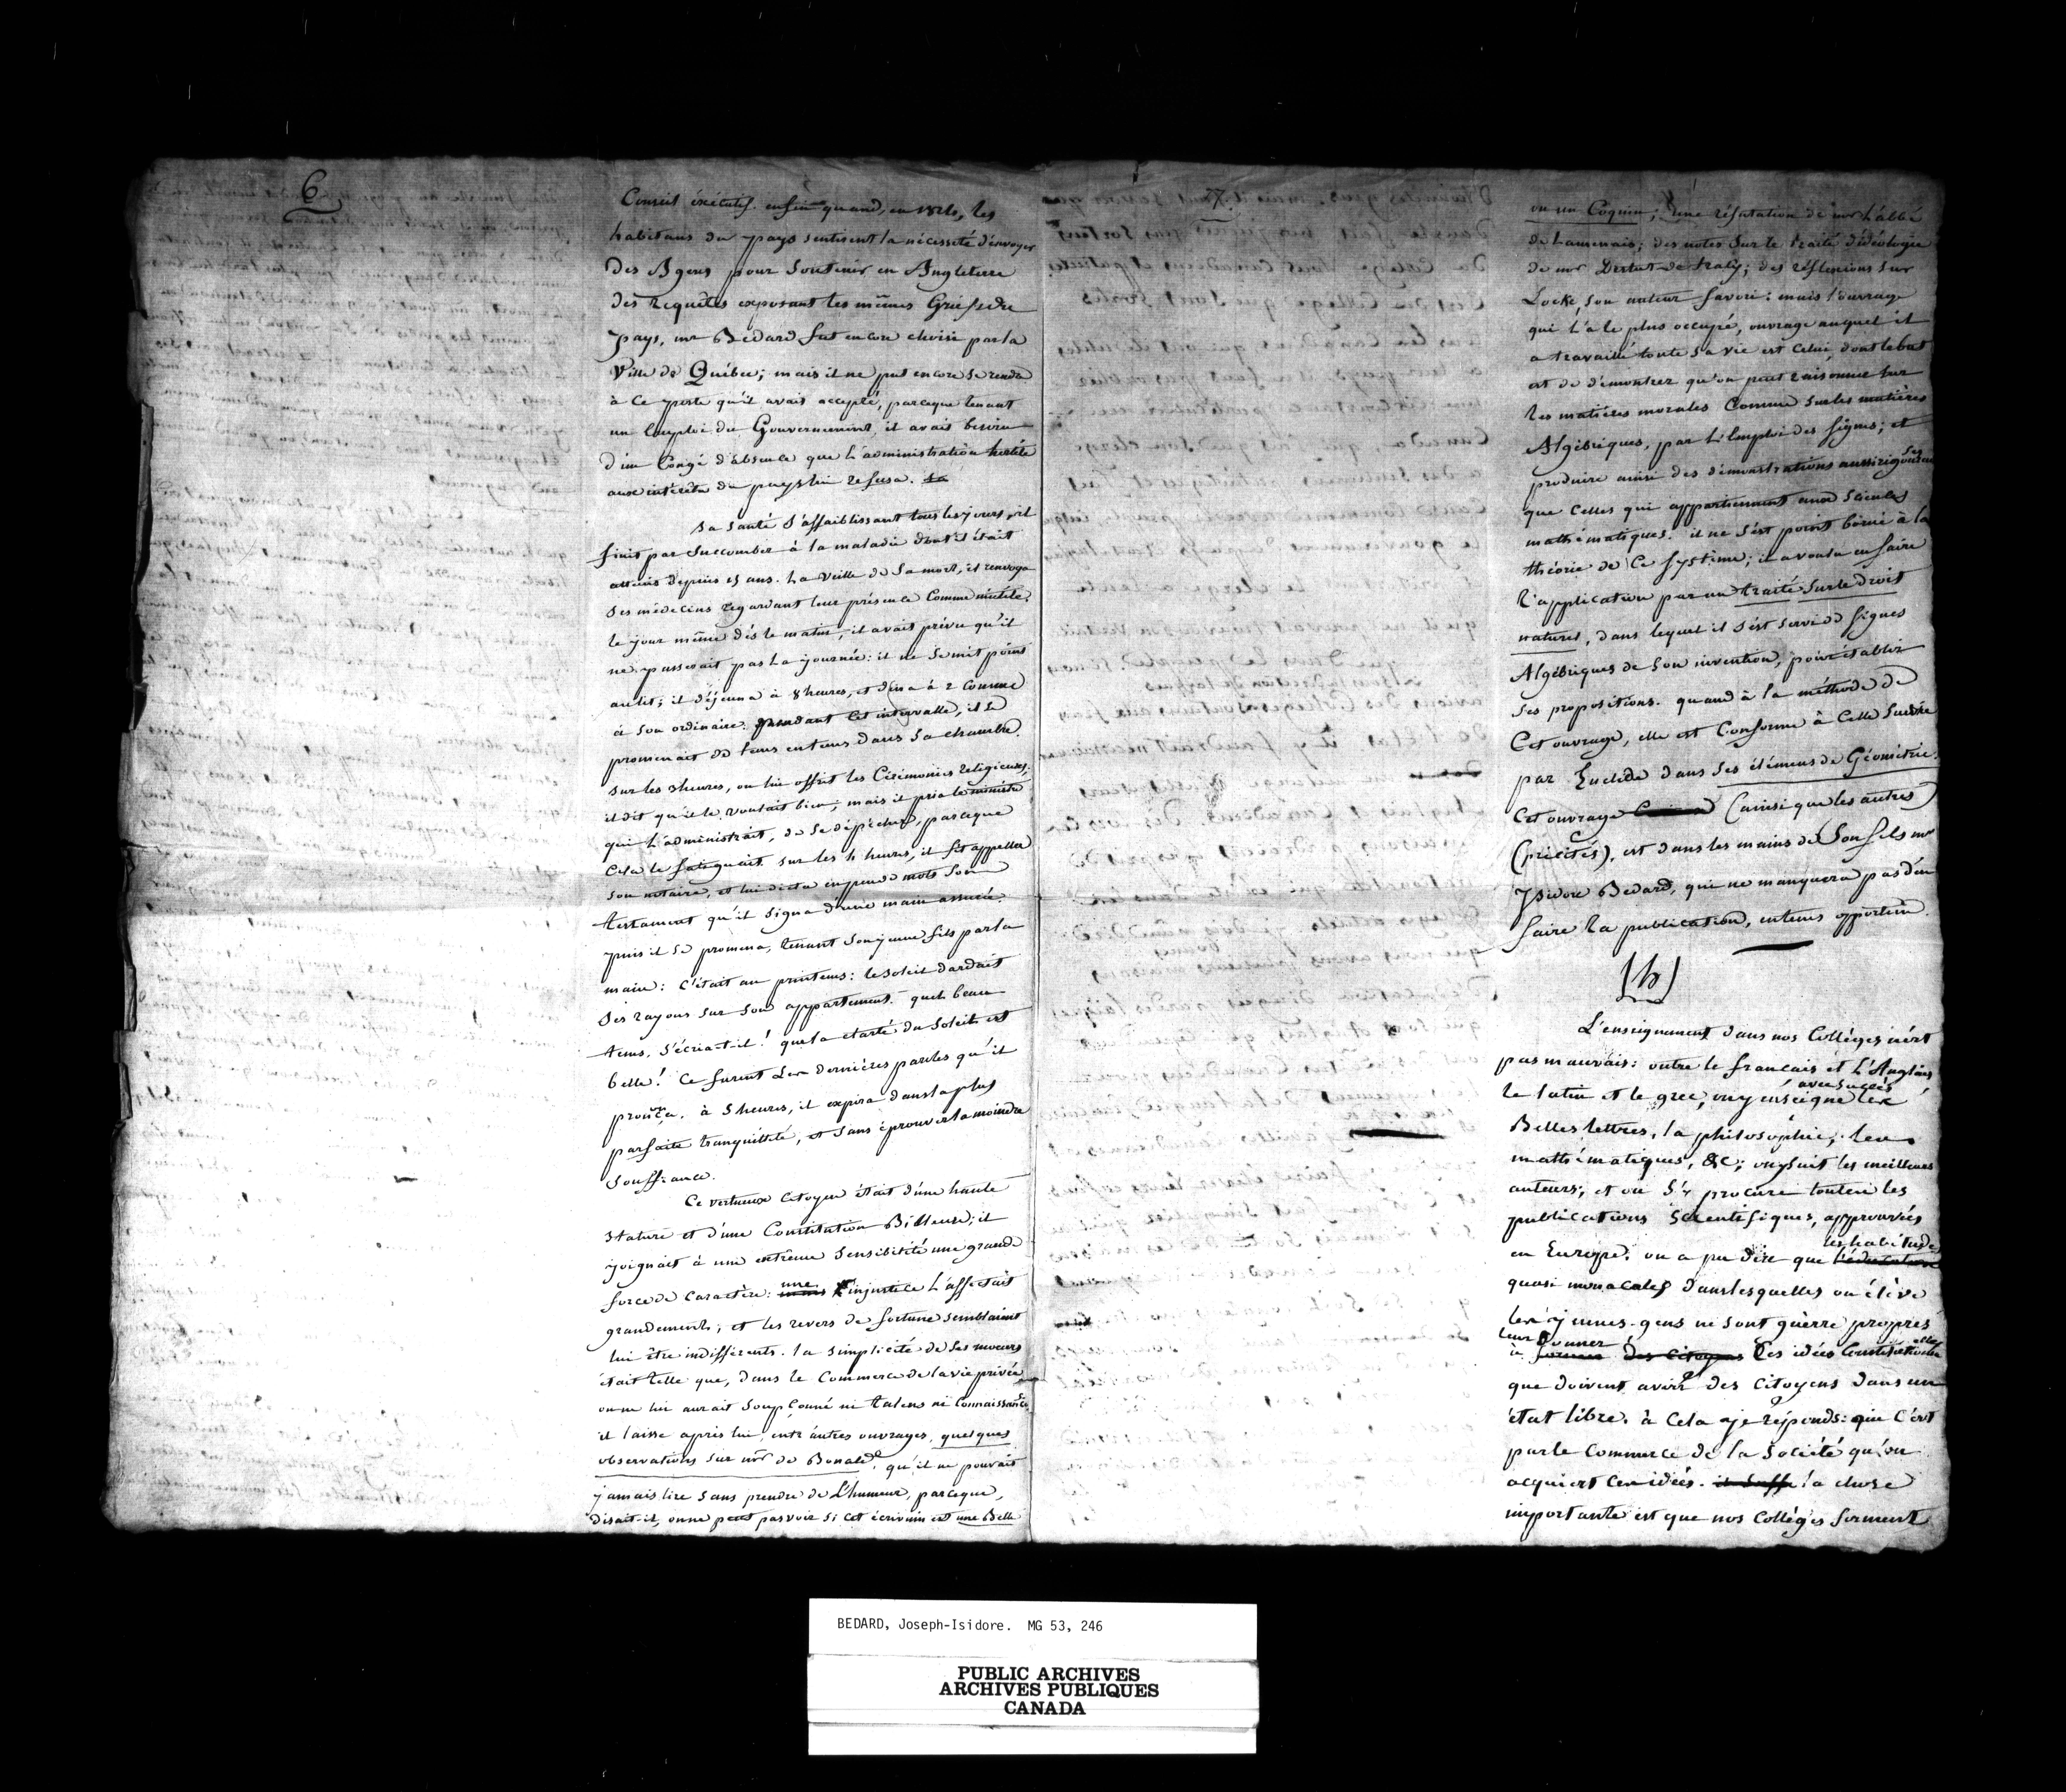 6
Conseil éxécutif. enfin quand, en 1824, les
habitans du pays sentirent la nécessité d'envoyer
des Agens pour soutenir en Angleterre
des requêtes exposant les mêmes Griefs de
pays, mr Bedard fut encore choisi par la
Ville de Québec; mais il ne put encore se rendre
à ce poste qu'il avait accepté, parceque tenant
un Emploi du Gouvernement, il avait besoin
d'un Congé d'absence que l'administration hostile
aux intérêts du pays lui refusa. sa
sa santé s'affaiblissant tous les jours, il
finit par succomber à la maladie dont il était
atteint depuis 15 ans. La veille de sa mort, il renvoya
ses médecins regardant leur présence comme inutile.
le jour même dès le matin, il avait prévu qu'il
ne passerait pas la journée: il ne se mit point
au lit; il déjeuna à 8 heures, et dina à 2 comme
à son ordinaire. pendant cet intervalle, il se
promenait de tems en tems dans sa chambre.
sur les 3 heures, on lui offrit les Cérémonies religieuses;
il dit qu'il le voulait bien; mais il pria le ministre
qui l'administrait, de se dépêcher, parceque
cela le fatiguait. sur les 4 heures, il fit appeller
son notaire, et lui dicta en peu de mots son
testament qu'il signa d'une main assurée.
puis il se promena, tenant son jeune fils par la
main: c'était au printems: le soleil dardait
ses rayons sur son appartement. quel beau
tems, s'écria-t-il! que la clarté du soleil est
belle! Ce furent les dernières paroles qu'il
prononça. à 5 heures, il expira dans la plus
parfaite tranquillité, et sans éprouver la moindre
souffrance.
Ce vertueux citoyen était d'une haute
stature et d'une Constitution Bilieuse; il
joignait à une extrême sensibilité une grande
force de caractère: une injustice l'affectait
grandement; et les revers de fortune semblaient
lui être indifférents. la simplicité de ses moeurs
était telle que, dans le commerce de la vie privée
on ne lui aurait soupçonné ni talens ni connaissances.
il laisse après lui, entr'autres ouvrages, quelques
observations sur mr de Bonald, qu'il ne pouvait
jamais lire sans prendre de l'humeur, parceque,
disait-il, on ne peut pas voir si cet écrivain est une Bête
7
8
ou un Coquin; une réfutation de mr l'abbé
de Lamenais; des notes sur le traité d'idéologie
de mr Destut de Traly; des réflexions sur
Locke, son auteur favori: mais l'ouvrage
qui l'a le plus occupé, ouvrage auquel il
a travaillé toute sa vie est celui, dont le but
est de démontrer qu'on peut raisonner sur
les matières morales comme sur les matières
Algébriques, par l'Emploi des signes; et
produire ainsi des démonstrations aussi rigoureuses
que celles qui appartiennent aux sciences
mathématiques. il ne s'est point borné à la
théorie de ce système; il a voulu en faire
l'application par un traité sur le droit
naturel, dans lequel il s'est servi de signes
Algébriques de son invention, pour établir
ses propositions. quand à la méthode de
cet ouvrage, elle est conforme à celle suivie
par Euclide dans ses élémens de Géométrie.
Cet ouvrage (ainsi que les autres
(précités), est dans les mains de son fils mr
Isidore Bedard, qui ne manquera pas d'en
faire la publication, en tems opportun.
(b)
L'enseignement dans nos Collèges n'est
pas mauvais: outre le francais et l'Anglais,
avec succès
le latin et le grec, on y enseigne les
Belles lettres, la philosophie, les
mathématiques, &c; on y suit les meilleurs
auteurs; et on s'y procure toutes les
publications scientifiques, approuvées
les habitudes
en Europe. on a pu dire que l'éducation
quasi monacales dans lesquelles on élève
les jeunes-gens ne sont guèrre propres
leur donner
à former des citoyens les idées Constitutionelles
que doivent avoir des citoyens dans un
état libre. à cela je réponds: que c'est
par le commerce de la société qu'on
acquiert ces idées. il suffit la chose
importante est que nos Collèges forment
BEDARD, Joseph-Isidore. MG 53, 246
PUBLIC ARCHIVES
ARCHIVES PUBLIQUES
CANADA